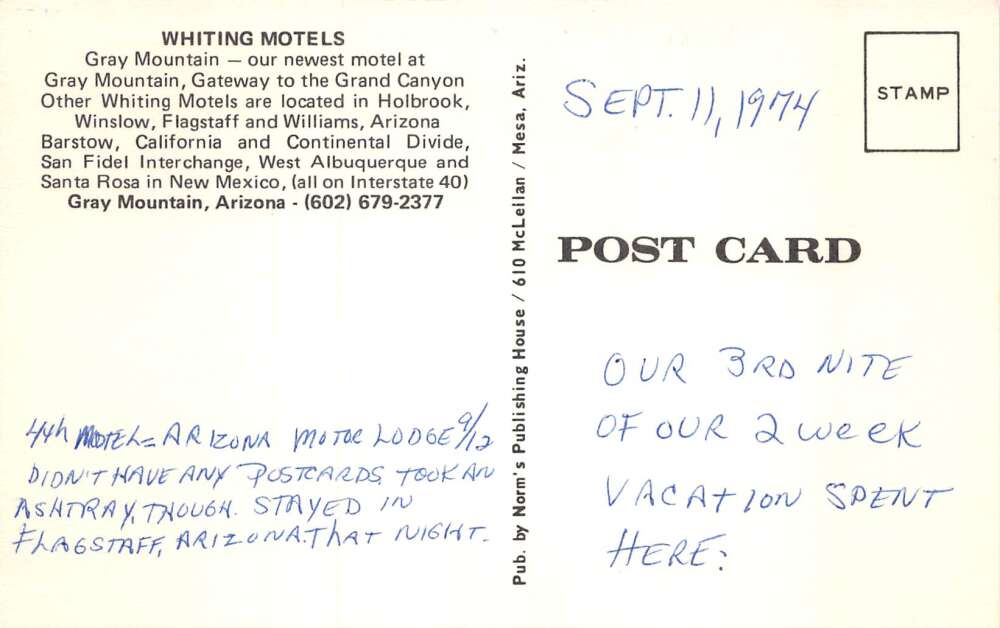 WHITING MOTELS
Gray Mountain — our newest motel at
Gray Mountain, Gateway to the Grand Canyon
Other Whiting Motels are located in Holbrook,
Winslow, Flagstaff and Williams, Arizona
Barstow, California and Continental Divide,
San Fidel Interchange, West Albuquerque and
Santa Rosa in New Mexico, (all on Interstate 40)
Gray Mountain, Arizona - (602) 679-2377
4th MOTEL = ARIZONA MOTOR LODGE 9/12
DIDN'T HAVE ANY POSTCARDS, TOOK AN
ASHTRAY, THOUGH. STAYED IN
FLAGSTAFF, ARIZONA.THAT NIGHT.
Pub. by Norm's Publishing House / 610 McLellan / Mesa, Ariz.
SEPT. 11, 1974
STAMP
POST CARD
OUR 3RD NITE
OF OUR 2 WEEK
VACATION SPENT
HERE: